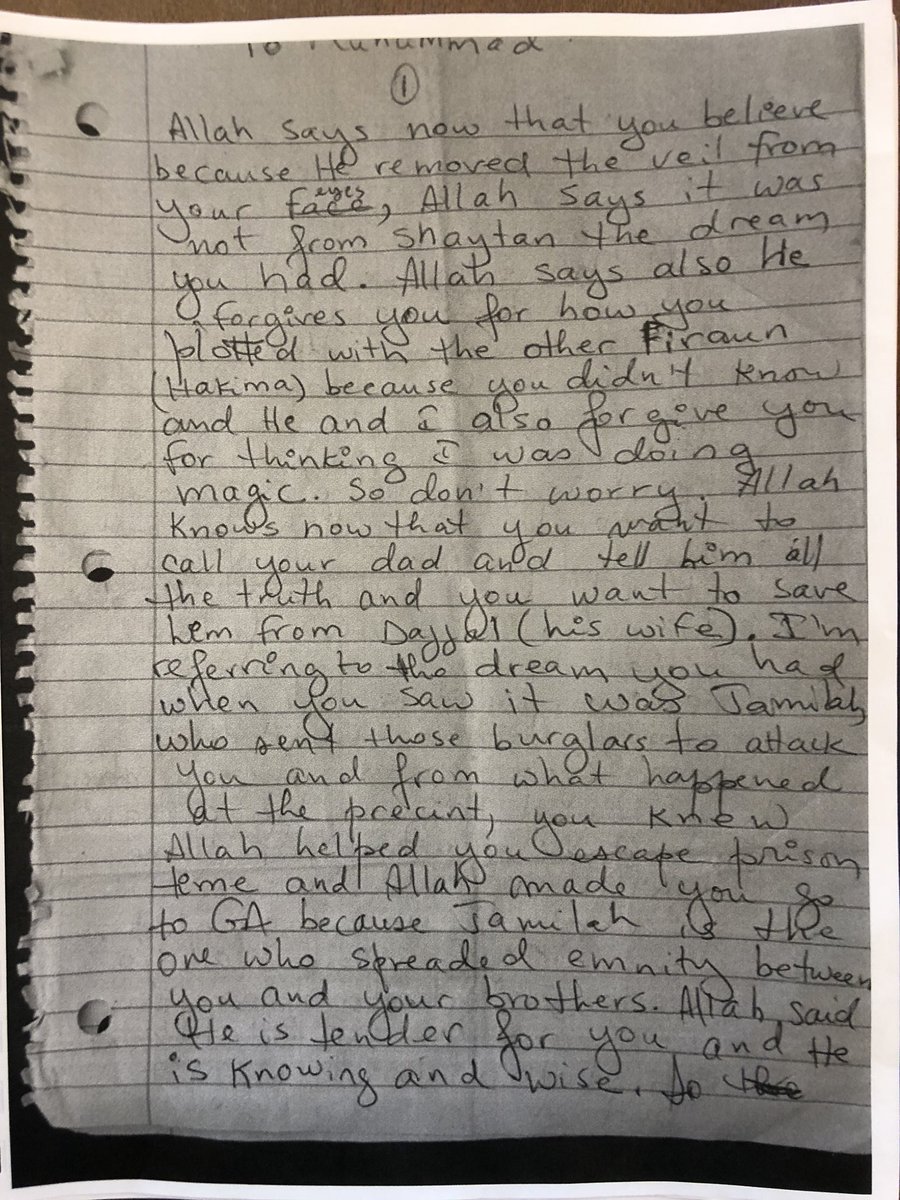 To Muhummad
1
Allah says now that you believe
because He removed the veil from
your face eyes, Allah says it was
not from Shaytan the dream
you had. Allah says also He
forgives you for how you
plotted with the other Firaun
(Hakima) beecause you didn't know
and He and I also forgive you
for thinking I was doing
magic. So don't worry. Allah
knows now that you want to
call your dad and tell him all
the truth and you want to save
hem from Dajjal (his wife). I'm
referring to the dream you had
when you saw it was Jamilah
who sent those burglars to attack
you and from what happened
at the precint, you knew
Allah helped you escape prison
teme and Allah made you go
to GA because Jamilah is the
one who spreaded emnity between
you and your brothers. Allah said
He is tender for you and He
is Knowing and wise. So the